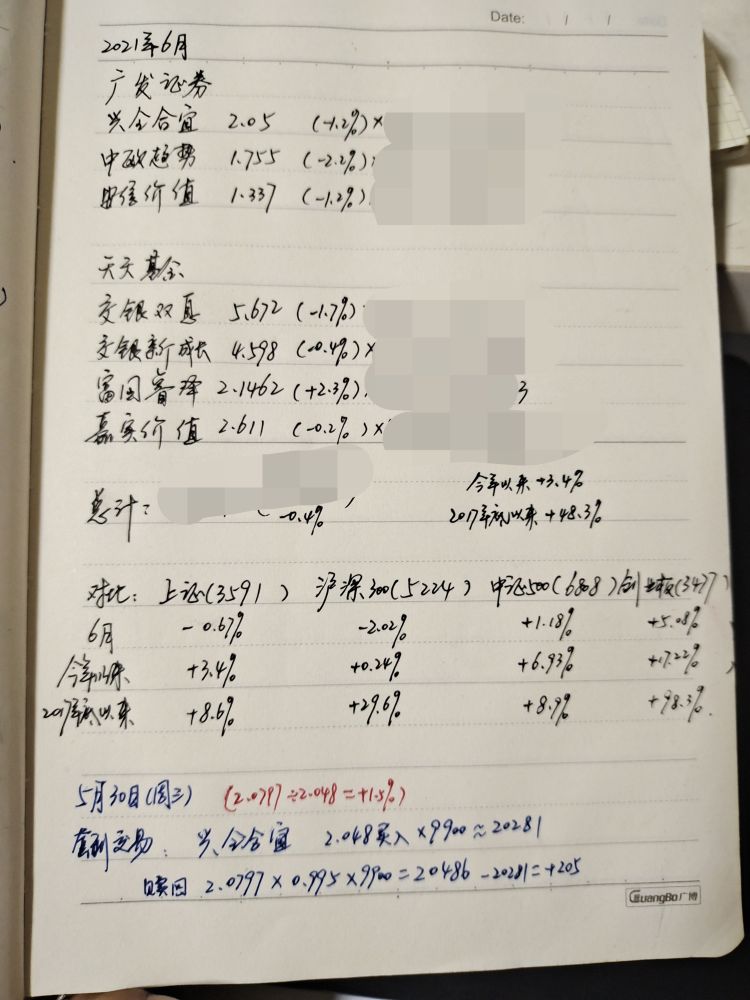 Date: / /
2021年6月
广发证券
兴全合宜 2.05 (-1.2%)×
中欧趋势 1.755 (-2.2%)
安信价值 1.337 (-1.2%)
天天基金
交银双息 5.672 (-1.7%)
交银新成长 4.598 (-0.4%)×
富国睿泽 2.1462 (+2.3%) 3
嘉实价值 2.611 (-0.2%)×
今年以来 +3.4%
总计: -0.4% 2017年底以来 +48.3%
对比: 上证(3591) 沪深300(5224) 中证500(6808) 创业板(3477)
6月 -0.67% -2.02% +1.18% +5.08%
今年以来 +3.4% +0.24% +6.93% +17.22%
2017年底以来 +8.6% +29.6% +8.9% +98.3%
5月30日(周三) (2.0797÷2.048=+1.5%)
套利交易: 兴全合宜 2.048买入×9900≈20281
赎回 2.0797×0.995×9900=20486-20281=+205
GuangBo广博